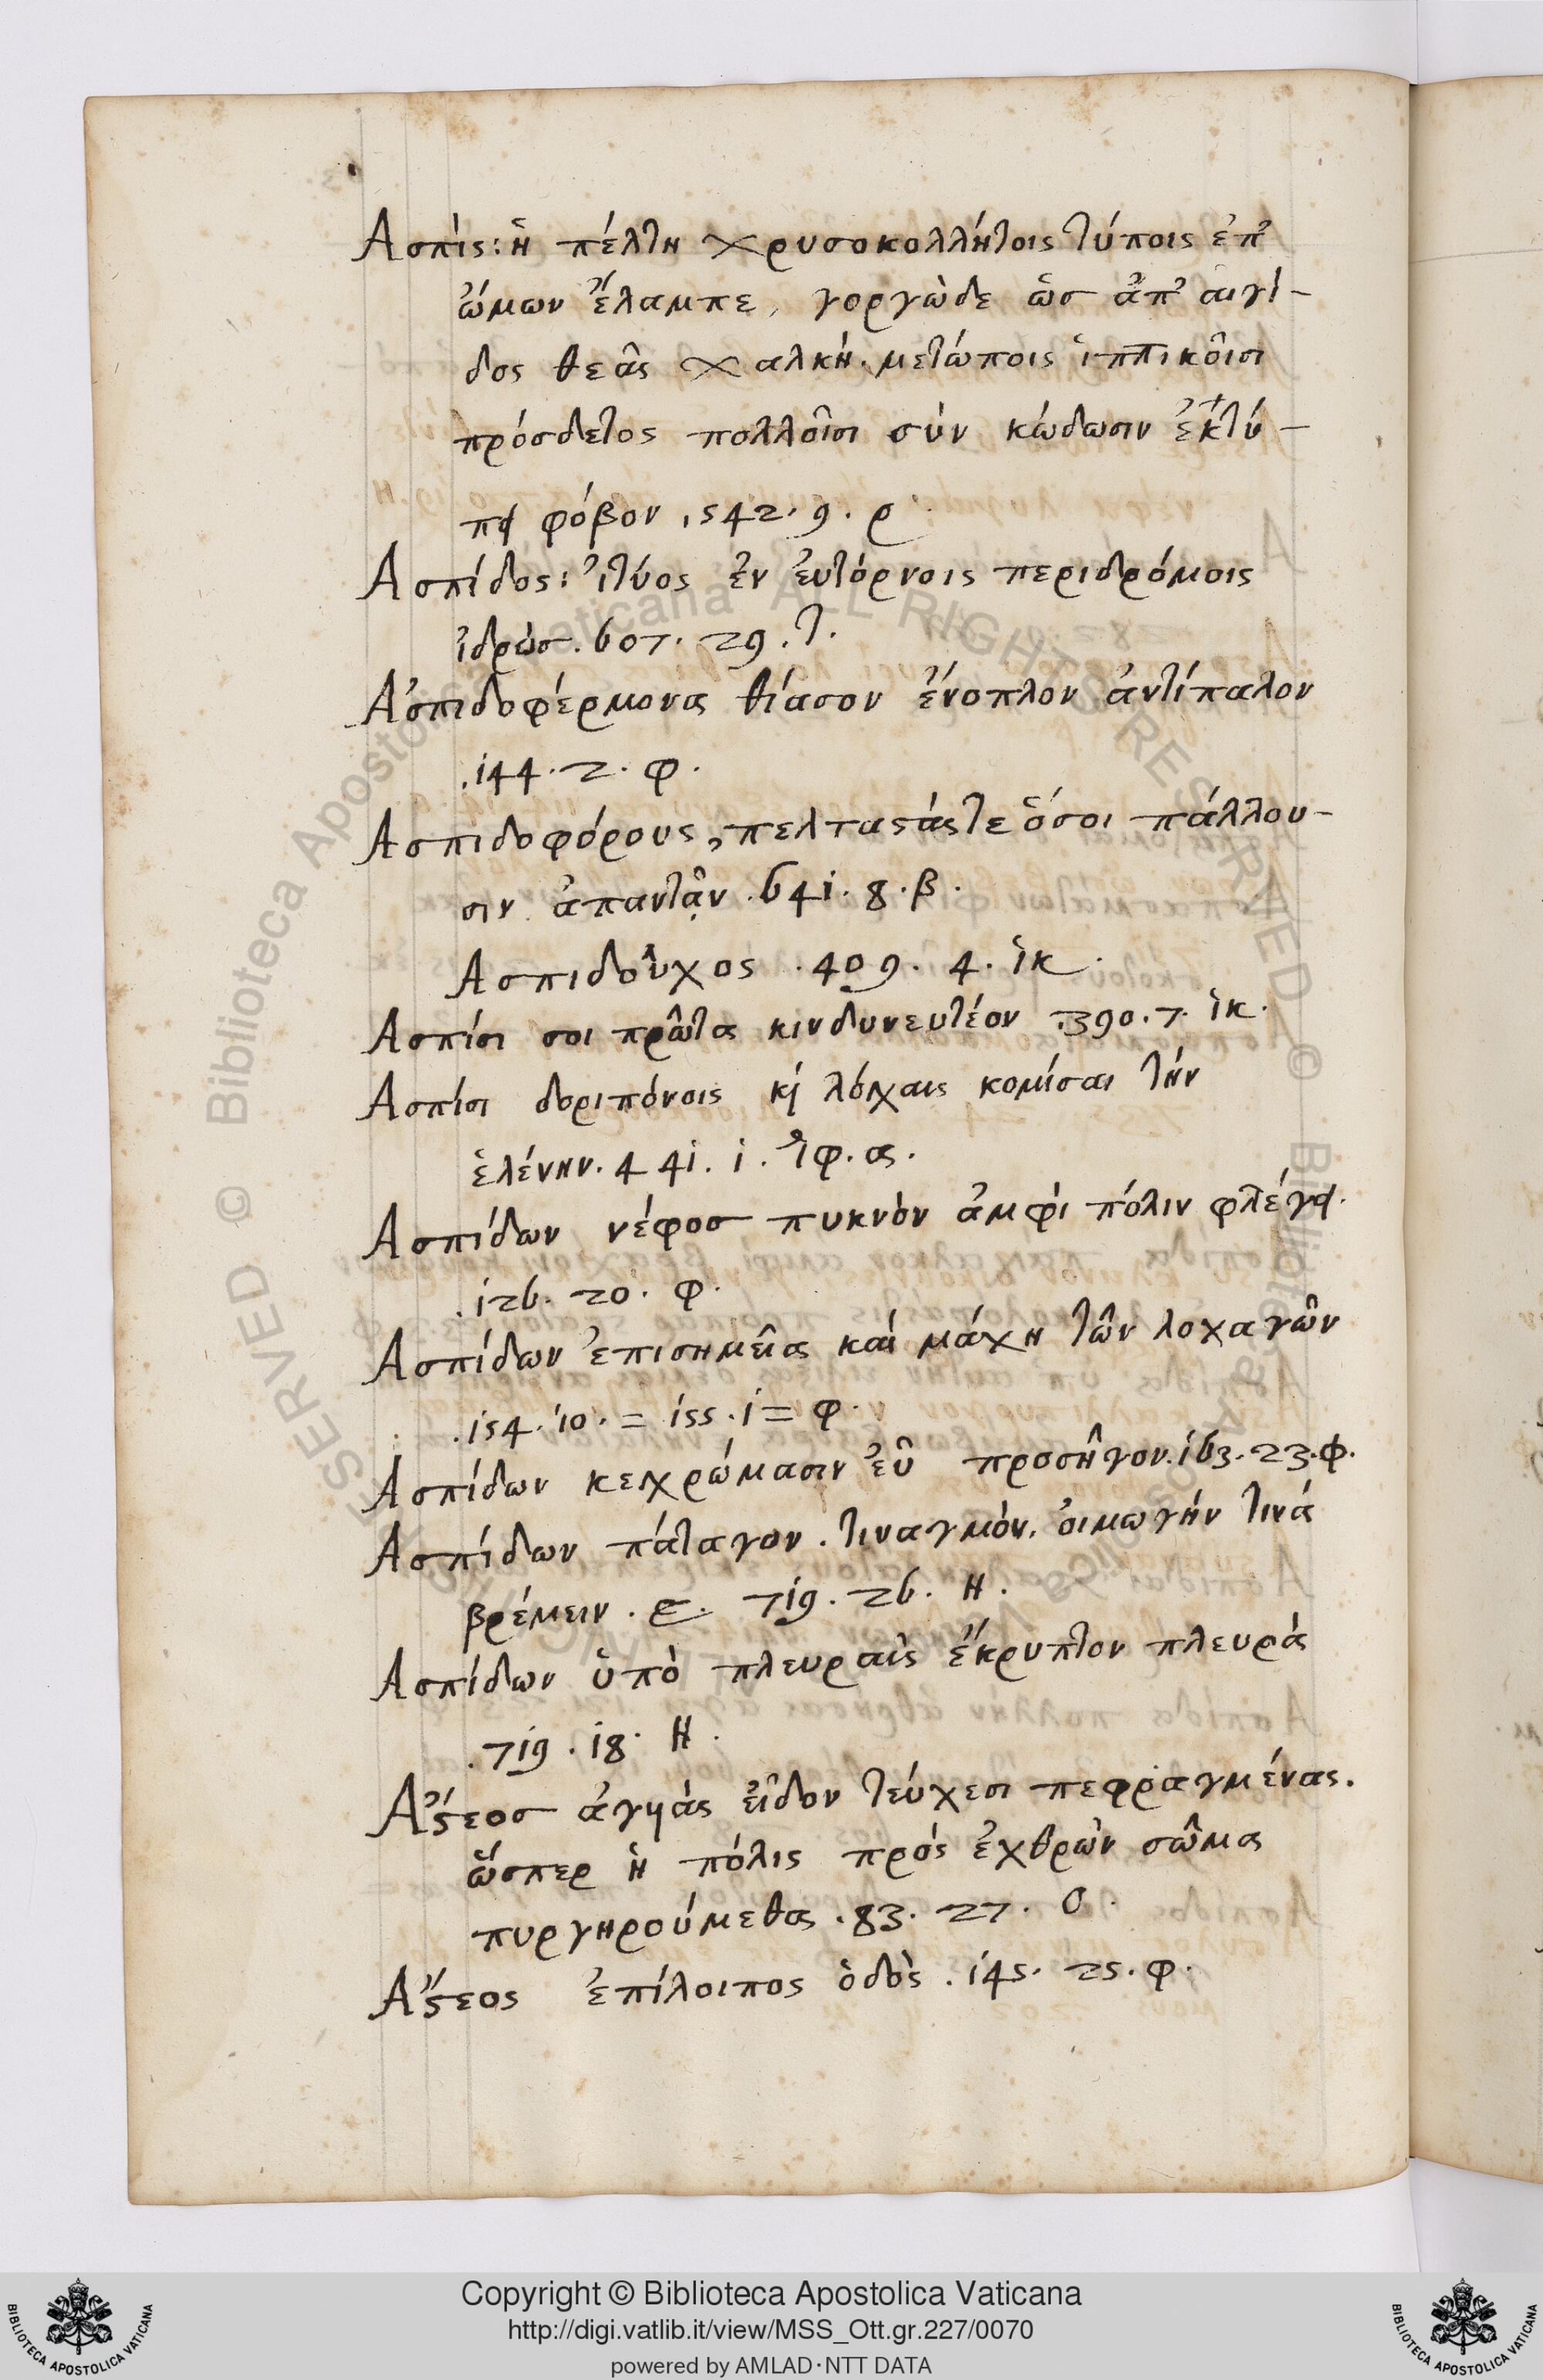 Ασπὶς: ἡ πέλτη χρυσοκολλήτοις τύποις ἐπ᾽
ὤμων ἔλαμπε, γοργὼδε ὡσ ἀπ᾽ αιγί-
δος θεᾶς χαλκή. μετώποις ἱππικοῖσι
πρόσδετος πολλοῖσι σὺν κώδωσιν ἐκτύ-
πει φόβον, 542. 9. ρ
Ασπίδος: ἰτύος ἐν ἐυτόρνοις περιδρόμοις
ἱδρὼσ. 607. 29. τ.
Ἀσπιδοφέρμονα θίασον ἔνοπλον ἀντίπαλον
.144. 2. φ.
Ασπιδοφόρους, πελταςάς τε ὅσοι πάλλου-
σιν ἀπαντᾷν. 641. 8. β.
Ασπιδοῦχος. 409. 4. ἱκ.
Ασπίσι σοι πρῶτα κινδυνευτέον .390. 7. ἱκ.
Ασπίσι δοριπόνοις κὶ λόγχαις κομίσαι τὴν
ἑλένην. 441. 1. ἰφ. α.
Ασπίδων νέφοσ πυκνὸν ἀμφὶ πόλιν φλέγει.
.126. 20. φ.
Ασπίδων ἐπισημεῖα καὶ μάχη τῶν λοχαγῶν
.154. 10. = 155. 1 = φ.
Ασπίδων κεχρώμασιν ἐῦ προσῆγον. 163. 23. φ.
Ασπίδων πάταγον. τιναγμὸν, ὀιμωγήν τινά
βρέμειν. ε. 719. 26. Η.
Ασπίδων ὑπὸ πλευραῖς ἔκρυπτον πλευρὰ
.719. 18. Η.
Ἄςεοσ ἀγυιὰς εἶδον τεύχεσι πεφραγμένας.
ὥσπερ ἡ πόλις πρὸς ἐχθρὼν σῶμα
πυργηρούμεθα. 83. 27. Ο.
Ἄςεος ἐπίλοιπος ὁδὸς. 145. 25. φ.
Copyright © Biblioteca Apostolica Vaticana
http://digi.vatlib.it/view/MSS_Ott.gr.227/0070
powered by AMLAD·NTT DATA
BIBLIOTECA APOSTOLICA VATICANA
BIBLIOTECA APOSTOLICA VATICANA